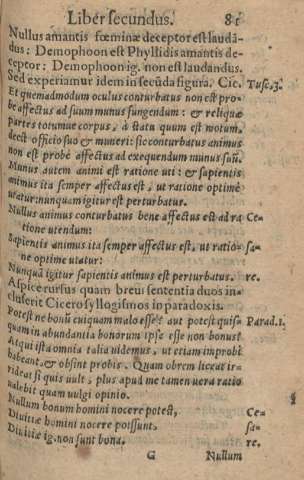 Liber secundus. 81
Nullus amantis fœminæ deceptor est laudā-
dus: Demophoon est Phyllidis amantis de-
ceptor: Demophoon ig. non est laudandus.
Sed experiamur idem in secūda figura. Cic. Tusc. 3.
Et quemadmodum oculus conturbatus non est pro-
be affectus ad suum munus fungendum: & reliquæ
partes totumue corpus, à statu quum est motum,
deest officio suo & muneri: sic conturbatus animus
non est probè affectus ad exequendum munus suū.
Munus autem animi est ratione uti: & sapientis
animus ita semper affectus est, ut ratione optimè
utatur: nunquam igitur est perturbatus.
Nullus animus conturbatus bene affectus est ad ra Ce-
tione utendum:
Sapientis animus ita semper affectus est, ut ratio- sa-
ne optime utatur:
Nunquā igitur sapientis animus est perturbatus. re.
Aspice rursus quam breui sententia duos in-
cluserit Cicero syllogismos in paradoxis.
Potest ne bonū cuiquam malo esse? aut potest quis- Parad. 1.
quam in abundantia bonorum ipse esse non bonus?
Atqui ista omnia talia uidemus, ut etiam improbi
habeant, & obsint probis. Quam obrem liceat ir-
rideat si quis uult, plus apud me tamen uera ratio
ualebit quam uulgi opinio.
Nullum bonum homini nocere potest, Ce-
Diuitiæ homini nocere possunt, sa-
Diuitiæ ig. non sunt bona. re.
G Nullum